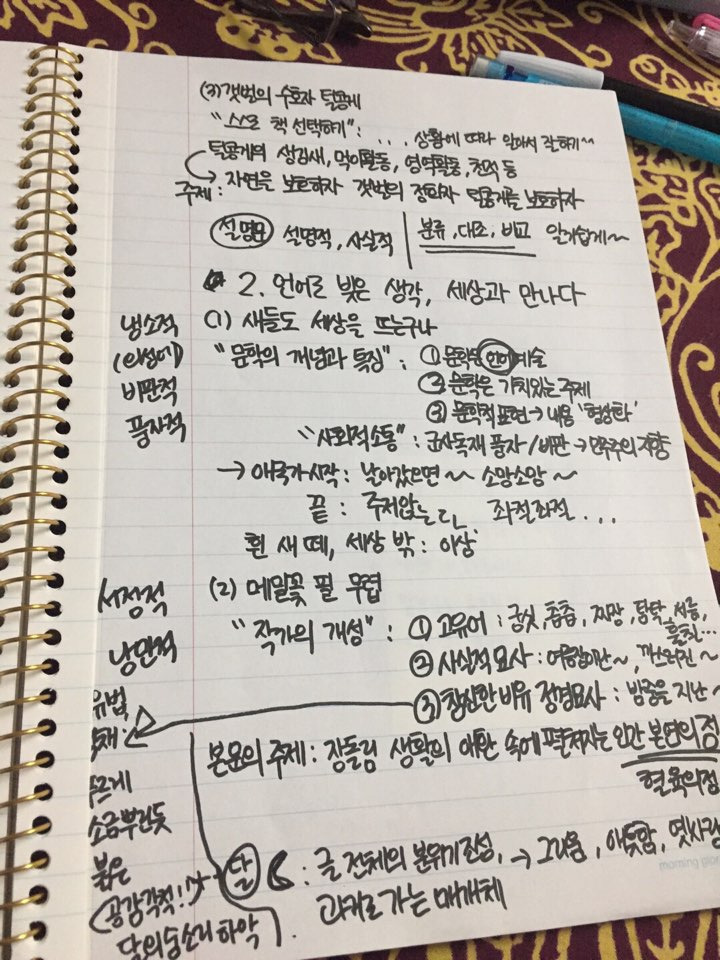 (3)갯벌의 수호자 털콩게
"스스로 책 선택하기": ... 상황에 따라 알아서 잘하기^^
털콩게의 생김새, 먹이활동, 영역활동, 천적 등
주제: 자연을 보호하자 갯벌의 정화자 털콩게를 보호하자
설명문 설명적, 사실적 | 분류, 대조, 비교 알기쉽게~
2. 언어로 빚은 생각, 세상과 만나다
냉소적 (1) 새들도 세상을 뜨는구나
(의성어) "문학의 개념과 특징": ① 문학은 언어예술
비판적 ② 문학은 가치있는 주제
풍자적 ③ 문학적 표현→내용 '형상화'
"사회적소통": 군사독재 풍자/비판→민주주의 지향
→ 애국가시작: 날아갔으면~ 소망소망~
끝: 주저앉는다 좌절좌절...
흰 새 떼, 세상 밖: 이상
서정적 (2) 메밀꽃 필 무렵
낭만적 "작가의 개성": ① 고유어: 궁싯, 츱츱, 짜장, 탐탁, 서름, 훌칠...
② 사실적 묘사: , 까스러진~
③ 참신한 비유 정경묘사: 밤중을 지난~
유법
본문의 주제: 장돌림 생활의 애환 속에 펼쳐지는 인간 본연의 정
혈육의정
푸르게
소금뿌린듯
붉은
(공감각적!!)
달의숨소리 하악
달 : 글 전체의 분위기 진성, → 그리움, 애틋함, 옛사랑
과거로 가는 매개체
morning glor